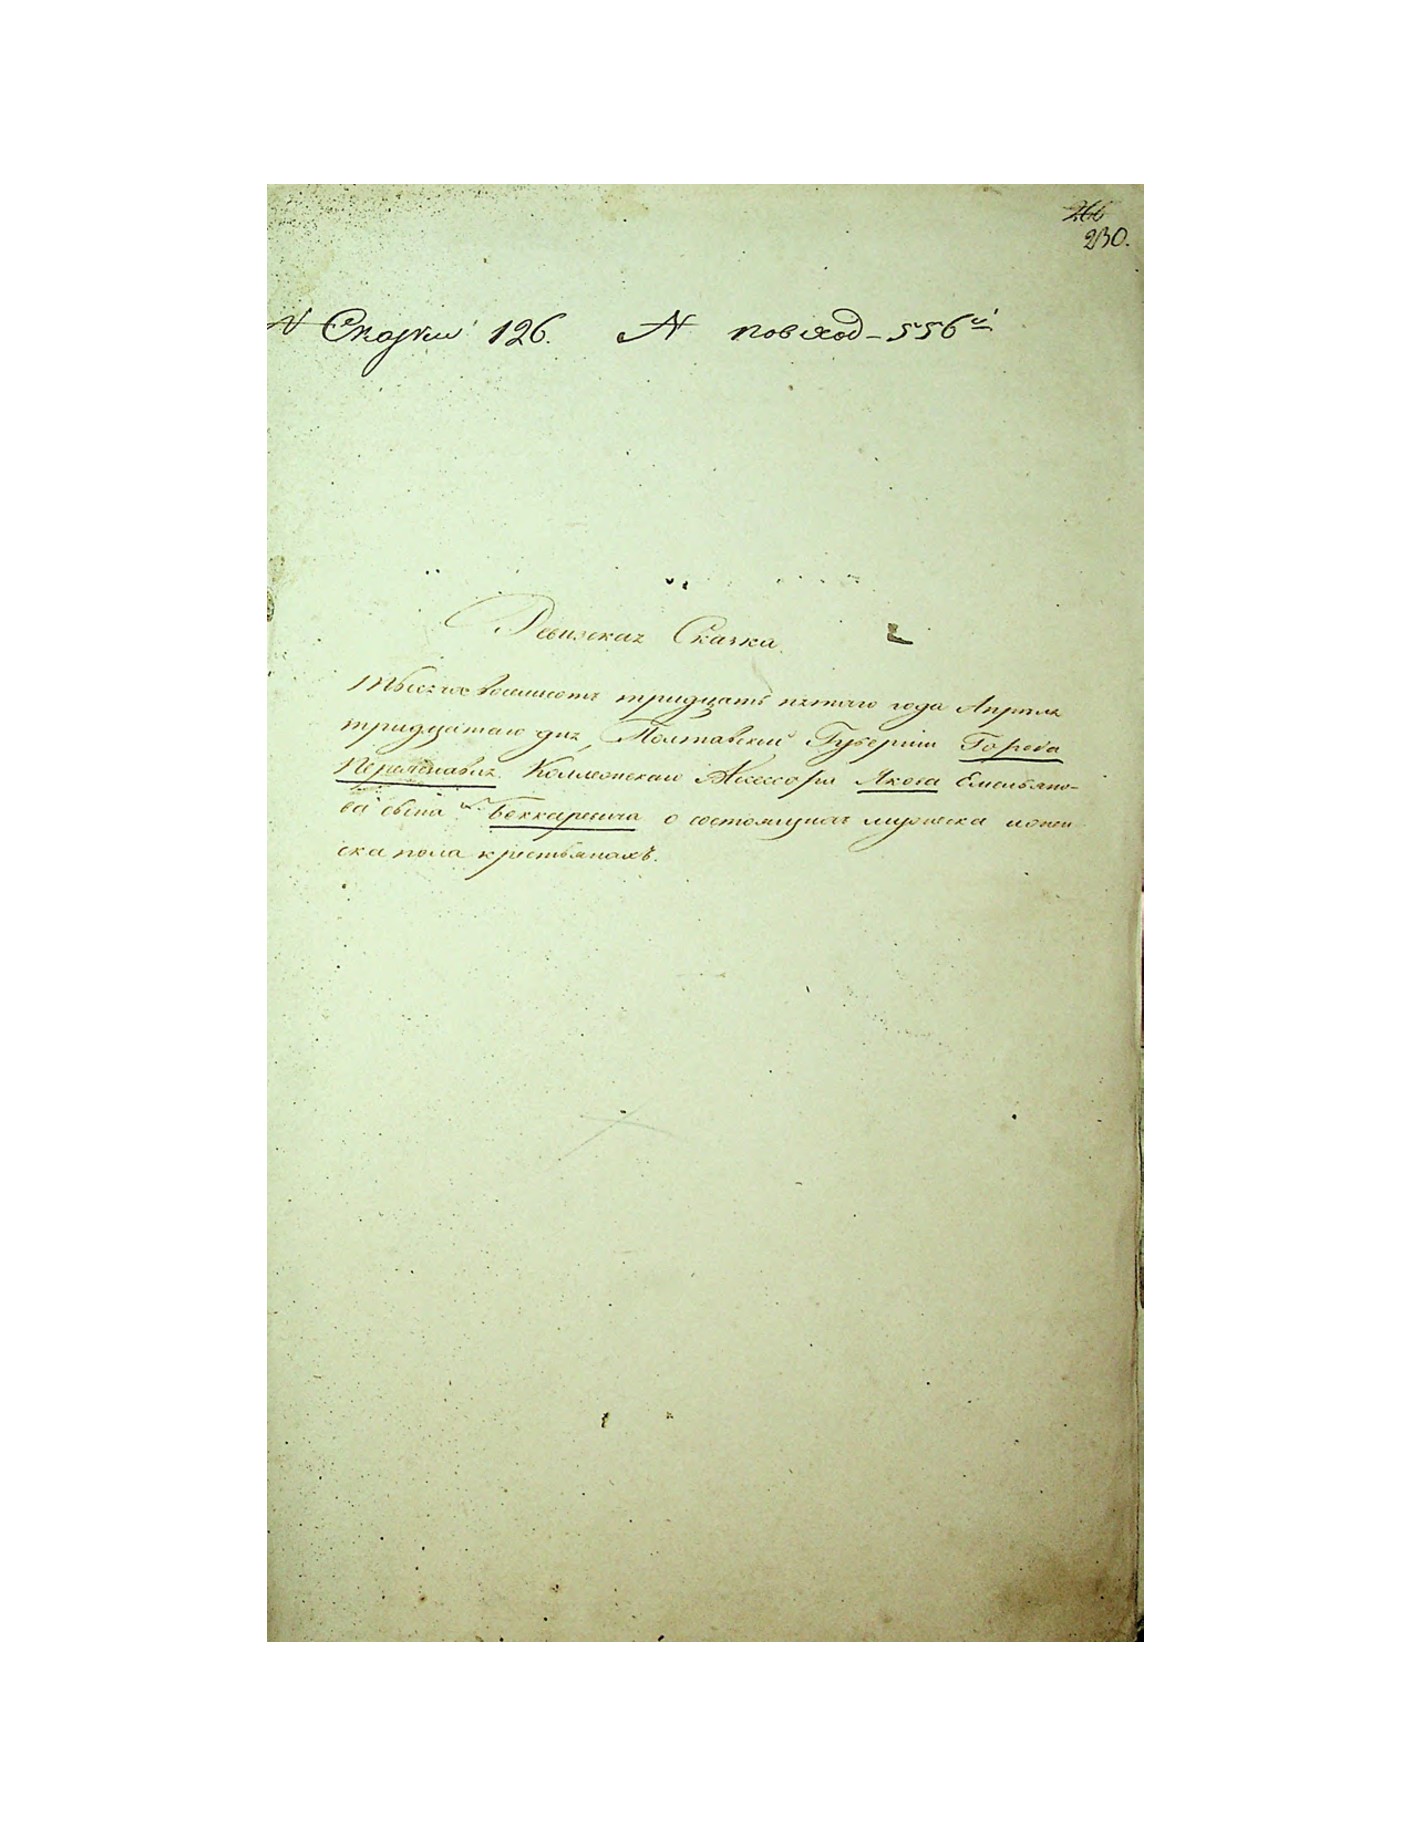 266
230.
№ Сказки 126. № по вход – 556й
Ревизская Сказка
Тысяча восемьсотъ тридцать пятаго года Апреля
тридцатаго дня, Полтавской Губернiи Города
Переяславля. Коллежскаго Асессора Якова Емельяно-
ва сына Беккаревича о состоящихъ мужеска и жен
ска пола крестьянахъ.